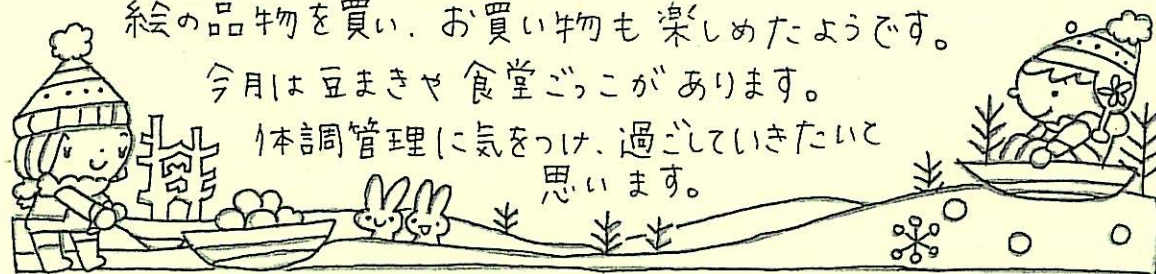 絵の品物を買い、お買い物も楽しめたようです。
今月は豆まきや食堂ごっこがあります。
体調管理に気をつけ、過ごしていきたいと
思います。